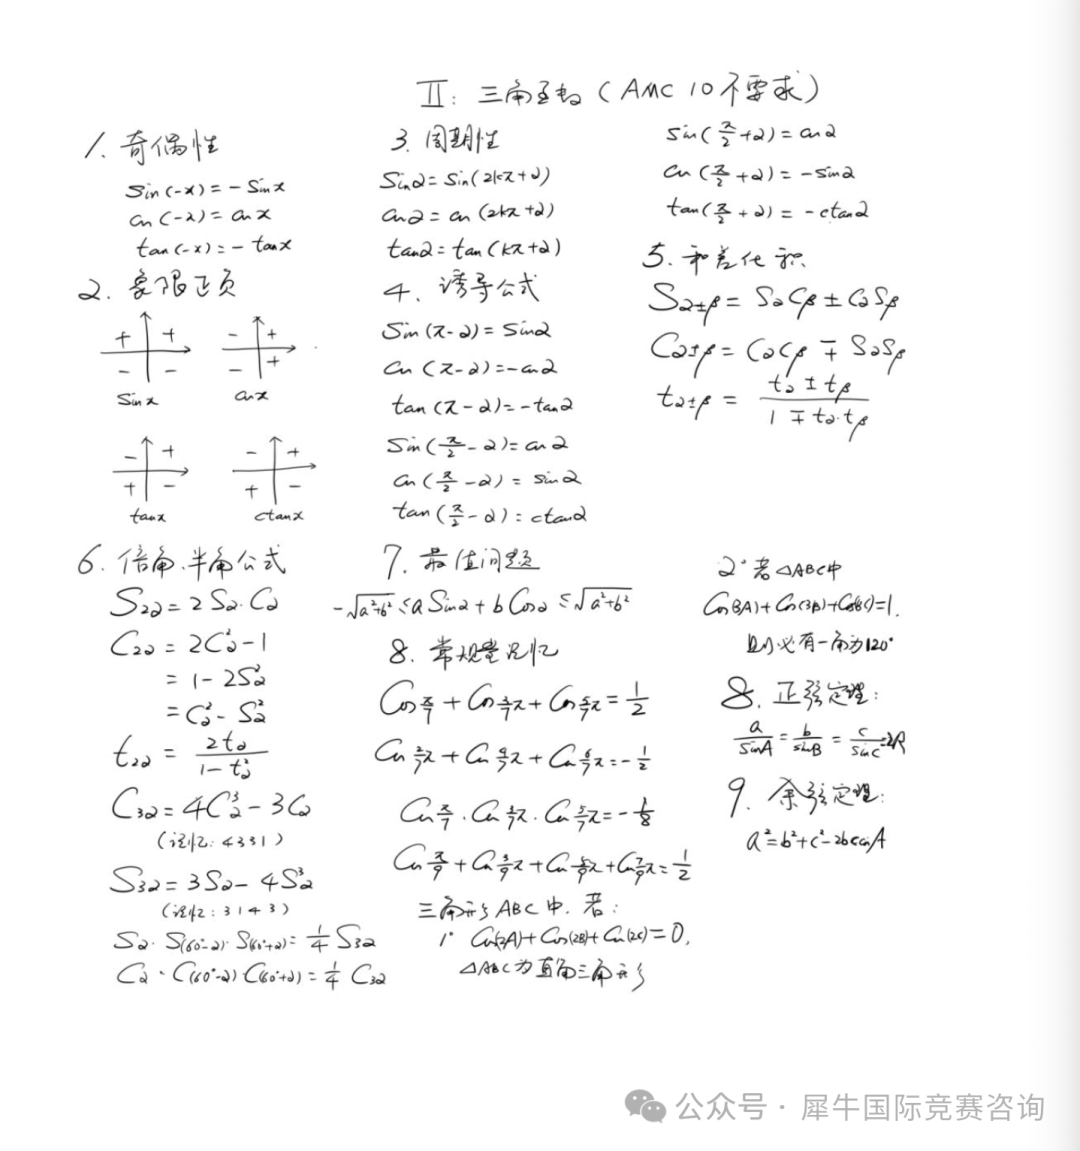 II: 三角函数 (AMC 10 不要求)
1. 奇偶性
sin(-x) = - sin x
cos(-x) = cos x
tan(-x) = - tan x
2. 象限正负
+ +
- -
sin x
- +
- +
cos x
- +
+ -
tan x
- +
+ -
ctan x
3. 周期性
sin α = sin(2kπ+α)
cos α = cos(2kπ+α)
tan α = tan(kπ+α)
4. 诱导公式
sin(π-α) = sin α
cos(π-α) = -cos α
tan(π-α) = -tan α
sin(π/2 - α) = cos α
cos(π/2 - α) = sin α
tan(π/2 - α) = ctan α
sin(π/2 + α) = cos α
cos(π/2 + α) = -sin α
tan(π/2 + α) = -ctan α
5. 和差化积
Sα±β = SαCβ ± CαSβ
Cα±β = CαCβ ∓ SαSβ
tα±β = (tα ± tβ)/(1 ∓ tα·tβ)
6. 倍角、半角公式
S2α = 2Sα·Cα
C2α = 2C²α - 1
= 1 - 2S²α
= C²α - S²α
t2α = 2tα/(1 - t²α)
C3α = 4C³α - 3Cα
(记忆: 4331)
S3α = 3Sα - 4S³α
(记忆: 3143)
Sα·S(60°-α)·S(60°+α) = 1/4 S3α
Cα·C(60°-α)·C(60°+α) = 1/4 C3α
7. 最值问题
-√(a²+b²) ≤ a Sin α + b Cos α ≤ √(a²+b²)
8. 常规量记忆
Cos π/7 + Cos 3/7π + Cos 5/7π = 1/2
Cos 2/7π + Cos 4/7π + Cos 6/7π = -1/2
Cos π/7 · Cos 3/7π · Cos 5/7π = -1/8
Cos π/9 + Cos 3/9π + Cos 5/9π + Cos 7/9π = 1/2
三角形 ABC 中, 若:
1° Cos(2A) + Cos(2B) + Cos(2C) = 0,
△ABC为直角三角形
2° 若△ABC中
Cos(3A) + Cos(3B) + Cos(3C) = 1,
则必有一角为120°
8. 正弦定理:
a/sinA = b/sinB = c/sinC = 2R
9. 余弦定理:
a² = b² + c² - 2bc cos A
公众号 · 犀牛国际竞赛咨询